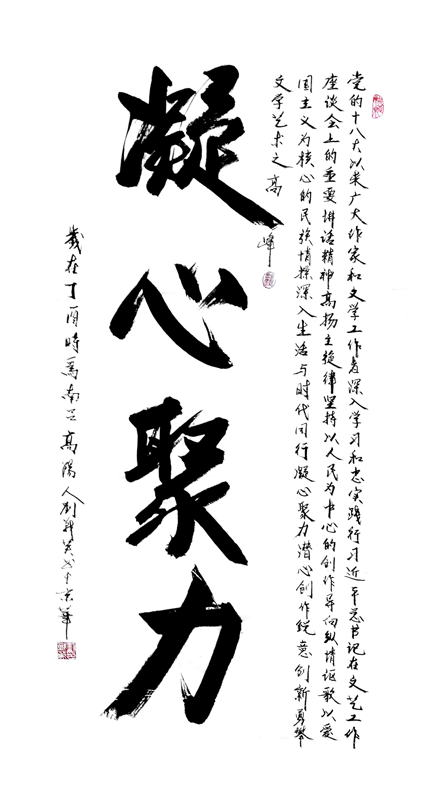 党的十八大以来广大作家和文学工作者深入学习和忠实践行习近平总书记在文艺工作
座谈会上的重要讲话精神高扬主旋律坚持以人民为中心的创作导向纵情讴歌以爱
国主义为核心的民族情操深入生活与时代同行凝心聚力潜心创作锐意创新勇攀
文学艺术之高
峰
凝心聚力
岁在丁酉时焉南呈高阳人刘